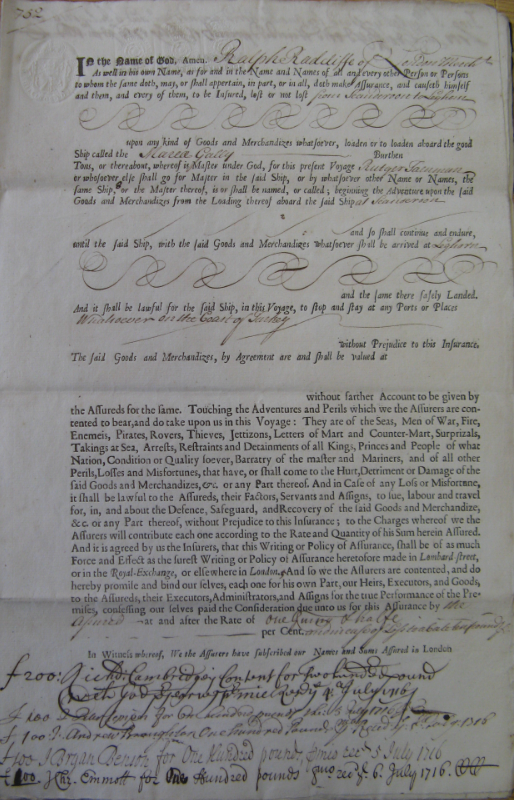 752
In the Name of God, Amen. Ralph Radcliffe of London Merch.t
As well in his own Name, as for and in the Name and Names of all and every other Person or Persons
to whom the same doth, may, or shall appertain, in part, or in all, doth make Assurance, and causeth himself
and them, and every of them, to be Insured, lost or not lost from Scanderoon to Leghorn
upon any kind of Goods and Merchandizes whatsoever, loaden or to loaden aboard the good
Ship called the Galey Burthen
Tons, or thereabout, whereof is Master under God, for this present Voyage Rutger
or whosoever else shall go for Master in the said Ship, or by whatsoever other Name or Names, the
same Ship, or the Master thereof, is or shall be named, or called; beginning the Adventure upon the said
Goods and Merchandizes from the Loading thereof aboard the said Ship at Scanderoon
and so shall continue and endure,
until the said Ship, with the said Goods and Merchandizes whatsoever shall be arrived at Leghorn
and the same there safely Landed.
And it shall be lawful for the said Ship, in this Voyage, to stop and stay at any Ports or Places
Whatsoever on the Coast of Turkey
without Prejudice to this Insurance.
The said Goods and Merchandizes, by Agreement are and shall be valued at
without farther Account to be given by
the Assureds for the same. Touching the Adventures and Perils which we the Assurers are con-
tented to bear, and do take upon us in this Voyage: They are of the Seas, Men of War, Fire,
Enemeis, Pirates, Rovers, Thieves, Jettizons, Letters of Mart and Counter-Mart, Surprizals,
Takings at Sea, Arrests, Restraints and Detainments of all Kings, Princes and People of what
Nation, Condition or Quality soever, Barratry of the master and Mariners, and of all other
Perils, Losses and Misfortunes, that have, or shall come to the Hurt, Detriment or Damage of the
said Goods and Merchandizes, &c. or any Part thereof. And in Case of any Loss or Misfortune,
it shall be lawful to the Assureds, their Factors, Servants and Assigns, to sue, labour and travel
for, in, and about the Defence, Safeguard, and Recovery of the said Goods and Merchandize,
&c. or any Part thereof, without Prejudice to this Insurance; to the Charges whereof we the
Assurers will contribute each one according to the Rate and Quantity of his Sum herein Assured.
And it is agreed by us the Insurers, that this Writing or Policy of Assurance, shall be of as much
Force and Effect as the surest Writing or Policy of Assurance heretofore made in Lombard-street,
or in the Royal-Exchange, or elsewhere in London. And so we the Assurers are contented, and do
hereby promise and bind our selves, each one for his own Part, our Heirs, Executors, and Goods,
to the Assureds, their Executors, Administrators, and Assigns for the true Performance of the Pre-
mises, confessing our selves paid the Consideration due unto us for this Assurance by the
Assured at and after the Rate of one Guinea & halfe
per Cent.
In Witness whereof, We the Assurers have subscribed our Names and Sums Assured in London
£200: Rich.d Cambridge, Content for Two hundred pound
July 1716
£100 for One hundred pounds July 1716
£100 I Andrew One hundred Pounds 1716
£100 I Bryan Benson for One Hundred pound, 5 July 1716
£100 I Chr. Emmott for One Hundred pounds 6 July 1716.